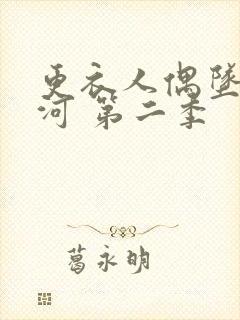 更衣人偶墜
河 第二季
葛永明